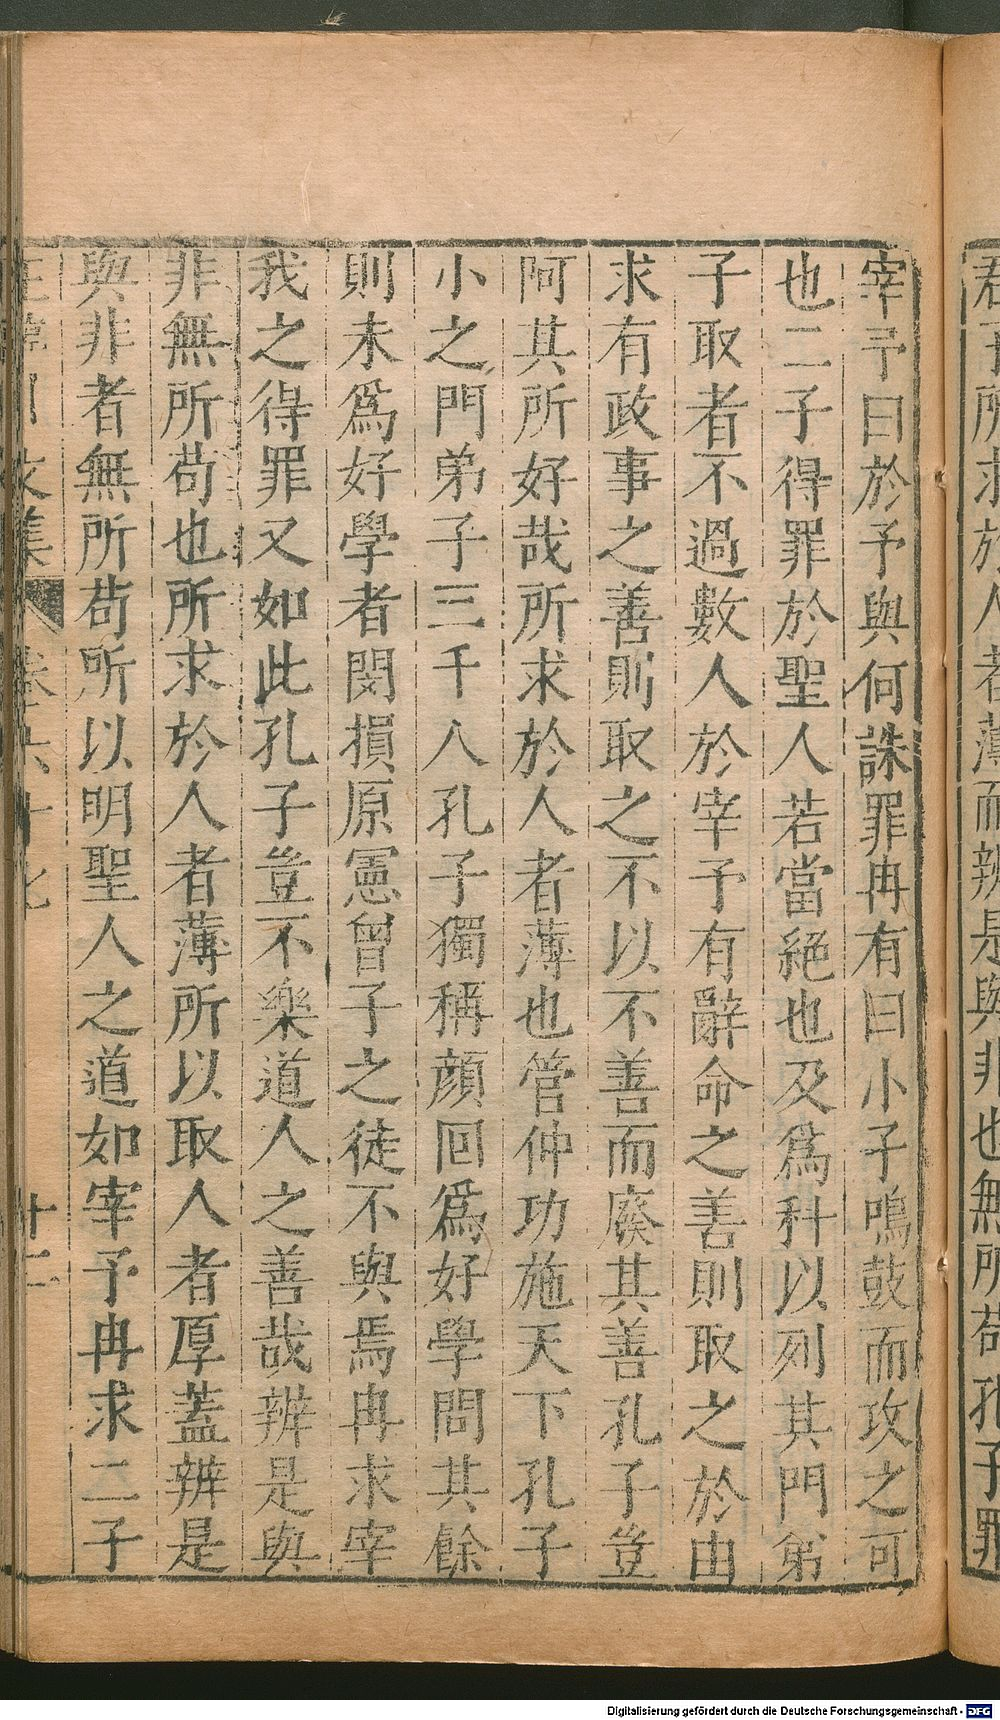 君子所求於人者薄而辨是與非也無所苟孔子罪
宰予曰於予與何誅罪冉有曰小子鳴鼓而攻之可
也二子得罪於聖人若當絕也及為科以列其門弟
子取者不過數人於宰予有辭命之善則取之於由
求有政事之善則取之不以不善而廢其善孔子豈
阿其所好哉所求於人者薄也管仲功施天下孔子
小之門弟子三千人孔子獨稱顏回為好學問其餘
則未為好學者閔損原憲曾子之徒不與焉冉求宰
我之得罪又如此孔子豈不樂道人之善哉辨是與
非無所苟也所求於人者薄所以取人者厚蓋辨是
與非者無所苟所以明聖人之道如宰予冉求二子
文集 卷六十七 十二
Digitalisierung gefördert durch die Deutsche Forschungsgemeinschaft - DFG